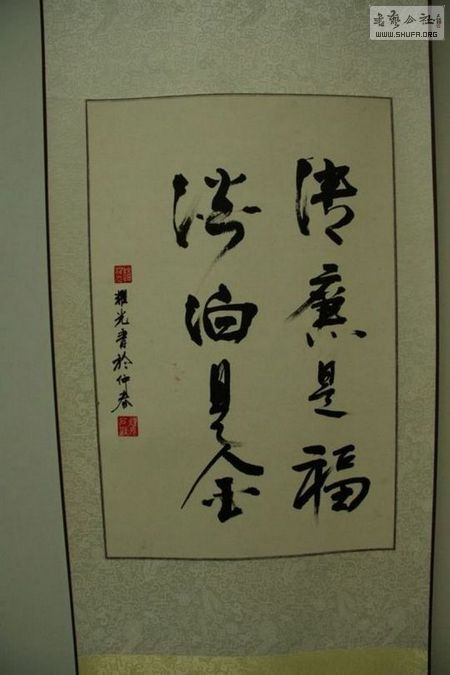 清廉是福
淡泊是金
耀光书於仲春
书艺公社
WWW.SHUFA.ORG